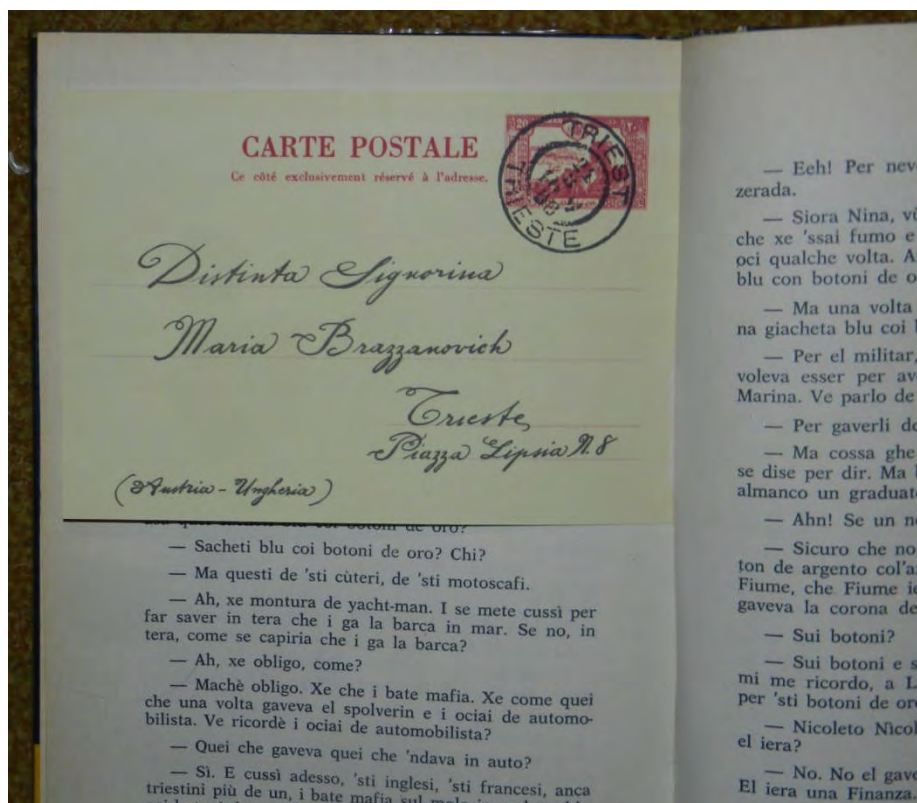 CARTE POSTALE
Ce côté exclusivement réservé à l'adresse.
20
TRIEST
TRIESTE
Distinta Signorina
Maria Brazzanovich
Trieste
Piazza Lipsia N. 8
(Austria - Ungheria)
coi botoni de oro?
— Sacheti blu coi botoni de oro? Chi?
— Ma questi de 'sti cùteri, de 'sti motoscafi.
— Ah, xe montura de yacht-man. I se mete cussì per
far saver in tera che i ga la barca in mar. Se no, in
tera, come se capiria che i ga la barca?
— Ah, xe obligo, come?
— Machè obligo. Xe che i bate mafia. Xe come quei
che una volta gaveva el spolverin e i ociai de automo-
bilista. Ve ricordè i ociai de automobilista?
— Quei che gaveva quei che 'ndava in auto?
— Sì. E cussì adesso, 'sti inglesi, 'sti francesi, anca
triestini più de un, i bate mafia sul molo
— Eeh! Per nev
zerada.
— Siora Nina, vù
che xe 'ssai fumo e
oci qualche volta. A
blu con botoni de o
— Ma una volta
na giacheta blu coi
— Per el militar,
voleva esser per av
Marina. Ve parlo de
— Per gaverli de
— Ma cossa ghe
se dise per dir. Ma
almanco un graduat
— Ahn! Se un n
— Sicuro che no
ton de argento col'a
Fiume, che Fiume i
gaveva la corona de
— Sui botoni?
— Sui botoni e s
mi me ricordo, a L
per 'sti botoni de or
— Nicoleto Nicol
el iera?
— No. No el gav
El iera una Finanza.